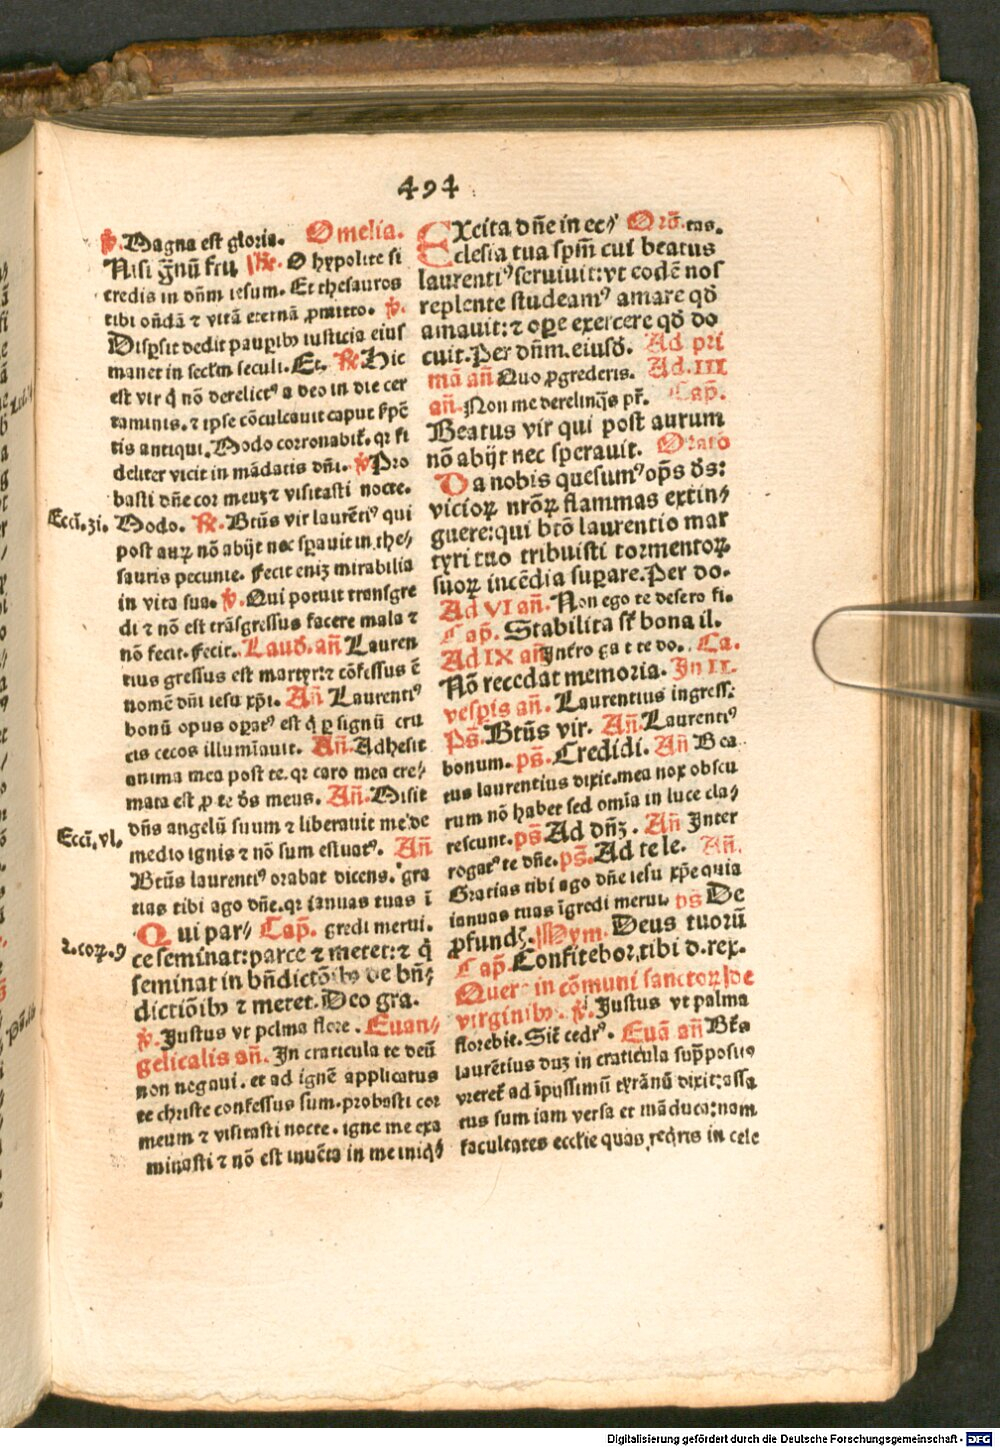 494
℣. Magna est gloria. Omelia.
Nisi g̃nũ fru ℟. O hypolite si
credis in dñm iesum. Et thesauros
tibi oñdã ⁊ vitã eternã ꝓmitto. ℣.
Disꝑsit dedit pauꝑibꝰ iusticia eiuſ
manet in sec̃lm seculi. Et. ℟ Hic
est vir q̃ nõ derelictꝰ a deo in die cer
taminis. ⁊ ipse cõculcauit caput ẜpẽ
tis antiqui. Modo corronabit̃. qꝛ fi
deliter vicit in mãdatis dñi. ℣ Pro
basti dñe cor meuꝫ ⁊ visitasti nocte.
Eccĩ. 3i. Modo. ℟. Btũs vir laurẽtiꝰ qui
post auꝝ nõ abijt nec sꝑauit in the⸗
sauris pecunie. fecit eniꝫ mirabilia
in vita sua. ℣. Qui potuit transgre
di ⁊ nõ est trãsgressus facere mala ⁊
nõ fecit. fecit. Laud̃. añ Lauren
tius gressus est martyr: ⁊ cõfessus ẽ
nomẽ dñi iesu xp̃i. Añ Laurentiꝰ
bonũ opus oꝑatꝰ est q̃ ꝑ signũ cru
cis cecos illumiauit. Añ. Adhesit
anima mea post te. qꝛ caro mea cre⸗
mata est ꝓ te d̃s meus. Añ. Misit
dñs angelũ suum ⁊ liberauit me de
Eccĩ. vl. medio ignis ⁊ nõ sum estuatꝰ. Añ
Btũs laurentiꝰ orabat dicens. gra
tias tibi ago dñe. qꝛ ianuas tuas ĩ
Qui par⸗ Cap̃. gredi merui.
2. coꝝ. 9 ce seminat: parce ⁊ metet: ⁊ q̃
seminat in bñdictõibꝰ de bñ⸗
dictiõibꝰ ⁊ metet. Deo gra.
℣. Justus vt pelma flore. Euan⸗
gelicalis añ. In craticula te deũ
non negaui. et ad ignẽ applicatus
te christe confessus sum. probasti cor
meum ⁊ visitasti nocte. igne me exa
minasti ⁊ nõ est inuẽta in me iniq̃⸗
EXcita dñe in ec⸗ Orõ. tas.
clesia tua spm̃ cui beatus
laurentiꝰ seruiuit: vt eodẽ nos
replente studeamꝰ amare qd̃
amauit: ⁊ oꝑe exercere qd̃ do
cuit. Per dñm. eiusd̃. Ad pri
mã añ Quo ꝓgrederis. Ad. III
añ. Non me derelinq̃s pr̃. Cap̃.
Beatus vir qui post aurum
nõ abijt nec sperauit. Oratõ
Da nobis quesumꝰ op̃s d̃s:
vicioꝝ nr̃oꝝ flammas extin⸗
guere: qui btõ laurentio mar
tyri tuo tribuisti tormentoꝝ
suoꝝ incẽdia suꝑare. Per do.
Ad VI añ. Non ego te desero fi.
Cap̃. Stabilita st̃ bona il.
Ad IX añ Intro ga t te do. Ca.
Nõ recedat memoria. In II.
vesꝑis añ. Laurentius ingress:
Ps̃. Btũs vir. Añ. Laurentiꝰ
bonum. ps̃. Credidi. Añ Bea
tus laurentius dixit. mea nox obscu
rum nõ habet sed oñia in luce cla⸗
rescunt. ps̃ Ad dñꝫ. Añ Inter
rogatꝰ te dñe. ps̃. Ad te le. Añ.
Gratias tibi ago dñe iesu xp̃e quia
ianuas tuas ĩgredi merui. ps̃ De
ꝓfundꝭ. Hym. Deus tuorũ
Cap̃. Confitebor tibi d. rex.
Quere in cõmuni sanctoꝝ de
virginibꝰ. ℣. Justus vt palma
florebit. Sic̃ cedrꝰ. Euã añ Bt̃s
laurẽtius duꝫ in craticula sup̃positus
vreret̃ ad ĩpyssimũ tyrãnũ dixit: assa
tus sum iam versa et mãduca: nam
facultates ecc̃lie quas req̃ris in cele
Digitalisierung gefördert durch die Deutsche Forschungsgemeinschaft - DFG